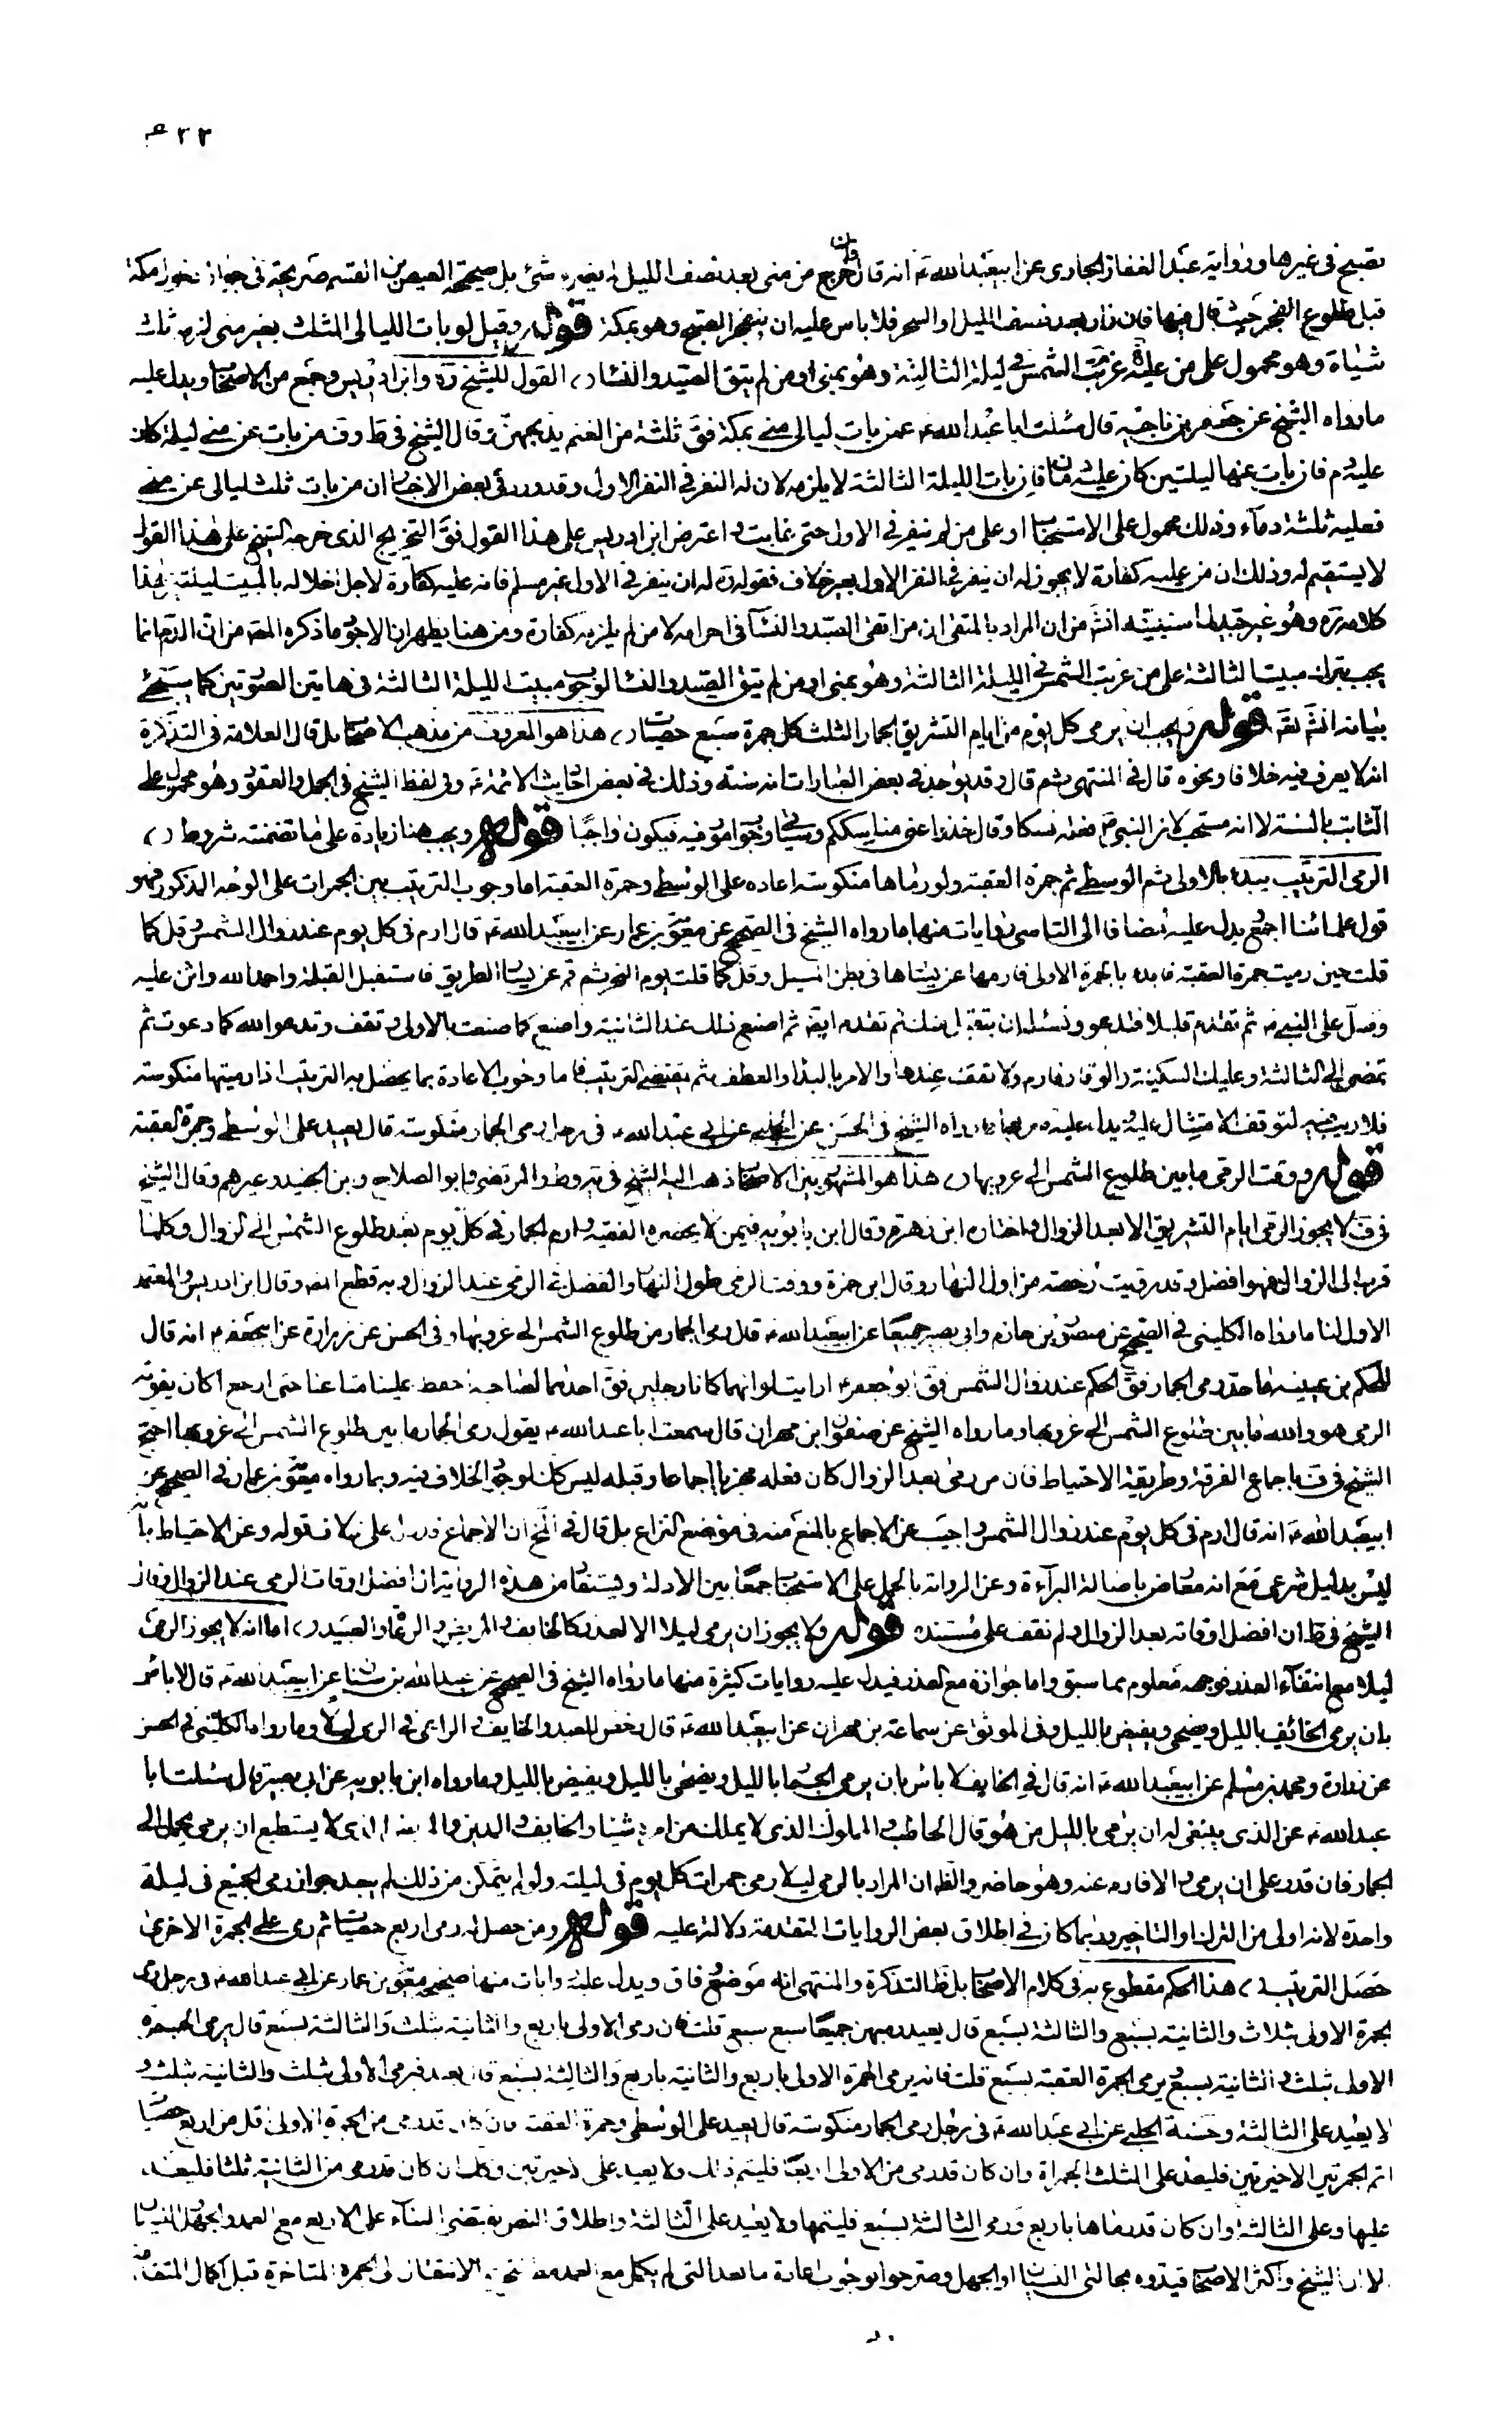 ٢٢
يصبح في غيرها ورواية عبد الغفار الجازي عن ابيعبد الله ع انه قال وان خرج من منى بعد نصف الليل لم يضره شئ بل صحيحة العيص بن القسم صريحة في جواز دخول مكة
قبل طلوع الفجر حيث قال فيها فان زار بعد نصف الليل او السحر فلا باس عليه ان ينفجر الصبح وهو بمكة قوله وقيل لو بات الليالي الثلث بغير منى لزمه ثلث
شياة وهو محمول على من غربت الشمس في ليلة الثالثة وهو بمنى او من لم يتق الصيد والنساء، القول للشيخ ره وابن ادريس وجمع من الاصحاب ويدل عليه
ما رواه الشيخ عن جعفر بن ناجية قال سئلت ابا عبد الله ع عمن بات ليالي منى بمكة فق ثلثة من الغنم يذبحهن وقال الشيخ في ط وق من بات عن منى ليلة كان
عليه دم فان بات عنها ليلتين كان عليه دمان فان بات الليلة الثالثة لا يلزمه لان له النفر في النفر الاول وقد ورد في بعض الاخبار ان من بات ثلث ليالي عن منى
فعليه ثلثة دماء وذلك محمول على الاستحباب او على من لم ينفر في الاول حتى غابت واعترض ابن ادريس على هذا القول فق التخريج الذي خرجه الشيخ على هذا القول
لا يستقيم له وذلك ان من عليه كفارة لا يجوز له ان ينفر في النفر الاول بغير خلاف فقوله ره له ان ينفر في الاول غير مسلم فانه عليه كفارة لاجل اخلاله بالمبيت ليلتين هذا
كلامه ره وهو غير جيد لما سنبينه انش من ان المراد بالمتقي ان من اتقى الصيد والنساء في احرامه لا من لم يلزمه كفارة ومن هنا يظهر ان الاجود ما ذكره المص من ان الدم انما
يجب بترك مبيت الثالثة على من غربت الشمس في الليلة الثالثة وهو بمنى او من لم يتق الصيد والنساء لوجوب مبيت الليلة الثالثة في هاتين الصورتين كما سيجئ
بيانه انش تع قوله ويجب ان يرمي كل يوم من ايام التشريق الجمار الثلث كل جمرة سبع حصيات، هذا هو المعروف من مذهب الاصحاب بل قال العلامة في التذكرة
انه لا يعرف فيه خلافا ونحوه قال في المنتهى ثم قال وقد يوجد في بعض العبارات انه سنة وذلك في بعض احاديث الائمة ع وفي لفظ الشيخ في الجمل والعقود وهو محمول على
الثابت بالسنة لا انه مستحب لان النبي ص فعله نسكا وقال خذوا عني مناسككم وسياتي اوجبوا مو فيه فيكون واجبا قوله ويجب هنا زيادة على ما تضمنته شروط،
الرمي الترتيب يبدء بالاولى ثم الوسطى ثم جمرة العقبة ولو رماها منكوسة اعاده على الوسطى وجمرة العقبة اما وجوب الترتيب بين الجمرات على الوجه المذكور فهو
قول علمائنا اجمع يدل عليه مضافا الى التاسي روايات منها ما رواه الشيخ في الصحيح عن معوية بن عمار عن ابيعبد الله ع قال ارم في كل يوم عند زوال الشمس وقل كما
قلت حين رميت جمرة العقبة فابدء بالجمرة الاولى فارمها عن يسارها في بطن المسيل وقل كما قلت يوم النحر ثم قم عن يسار الطريق فاستقبل القبلة واحمد الله واثن عليه
وصل على النبي ص ثم تقدم قليلا فتدعو وتسئله ان يتقبل منك ثم تقدم ايض ثم اصنع ذلك عند الثانية واصنع كما صنعت بالاولى وتقف وتدعو الله كما دعوت ثم
تمضي الى الثالثة وعليك السكينة والوقار فارم ولا تقف عندها والامر بالبداة والعطف بثم يقتضي الترتيب فاما وجوب الاعادة بما يحصل به الترتيب اذا رميتها منكوسة
فلا ريب فيه لتوقف الامتثال عليه يدل عليه ما رواه الشيخ في الحسن عن الحلبي عن ابي عبد الله ع في رجل رمى الجمار منكوسة قال يعيد على الوسطى وجمرة العقبة
قوله ووقت الرمي ما بين طلوع الشمس الى غروبها، هذا هو المشهور بين الاصحاب ذهب اليه الشيخ في يه وط والمرتضى وابو الصلاح وبن الجنيد وغيرهم وقال الشيخ
في ف لا يجوز الرمي ايام التشريق الا بعد الزوال واختاره ابن زهرة وقال ابن بابويه فيمن لا يحضره الفقيه وارم الجمار في كل يوم بعد طلوع الشمس الى الزوال وكلما
قرب الى الزوال فهو افضل وقد رويت رخصة من اول النهار وقال ابن حمزة ووقت الرمي طول النهار والفضل في الرمي عند الزوال وبه قطع المص وقال ابن ادريس والمعتمد
الاول لنا ما رواه الكليني في الصحيح عن منصور بن حازم وابي بصير جميعا عن ابيعبد الله ع قال رمي الجمار من طلوع الشمس الى غروبها وفي الحسن عن زرارة عن ابيجعفر ع انه قال
للحكم بن عيينه ما حد رمي الجمار فق الحكم عند زوال الشمس فق ابو جعفر ع ارايت لو انهما كانا رجلين فق احدهما لصاحبه احفظ علينا متاعنا حتى ارجع اكان يفوته
الرمي هو والله ما بين طلوع الشمس الى غروبها وما رواه الشيخ عن صفوان ابن مهران قال سمعت ابا عبد الله ع يقول رمي الجمار ما بين طلوع الشمس الى غروبها احتج
الشيخ في ف باجماع الفرقة وطريقة الاحتياط فان من رمى بعد الزوال كان فعله مجزيا اجماعا وقبله ليس كك لوجود الخلاف فيه وبما رواه معوية بن عمار في الصحيح عن
ابيعبد الله ع انه قال ارم في كل يوم عند زوال الشمس واجيب عن الاجماع بالمنع منه في موضع النزاع بل قال في المخ ان الاجماع قد دل على خلاف قوله وعن الاحتياط بانه
ليس بدليل شرعي مع انه معارض باصالة البراءة وعن الرواية بالحمل على الاستحباب جمعا بين الادلة ويستفاد من هذه الرواية ان افضل اوقات الرمي عند الزوال وقال
الشيخ في ط ان افضل اوقاته بعد الزوال ولم نقف على مستنده قوله ولا يجوز ان يرمي ليلا الا لعذر كالخايف والمريض والرعاة والعبيد، اما انه لا يجوز الرمي
ليلا مع انتفاء العذر فوجهه معلوم مما سبق واما جوازه مع العذر فيدل عليه روايات كثيرة منها ما رواه الشيخ في الصحيح عن عبد الله بن سنان عن ابيعبد الله ع قال لا باس
بان يرمي الخائف بالليل ويضحي ويفيض بالليل وفي الموثق عن سماعة بن مهران عن ابيعبد الله ع قال رخص للعبد والخايف والراعي في الرمي ليلا وما رواه الكليني في الحسن
عن زرارة ومحمد بن مسلم عن ابيعبد الله ع انه قال في الخايف لا باس بان يرمي الجمار بالليل ويضحي بالليل ويفيض بالليل وما رواه ابن بابويه عن ابي بصير قال سئلت ابا
عبد الله ع عن الذي ينبغي له ان يرمي بالليل من هو قال الحاطب والمملوك الذي لا يملك من امره شيئا والخايف والمدين والمريض الذي لا يستطيع ان يرمي يحمل الى
الجمار فان قدر على ان يرمي والا فارم عنه وهو حاضر والظ ان المراد بالرمي ليلا رمي جمرات كل يوم في ليلته ولو لم يتمكن من ذلك لم يبعد جواز رمي الجميع في ليلة
واحدة لانه اولى من الترك او التاخير وربما كان في اطلاق بعض الروايات المتقدمة دلالة عليه قوله ومن حصل له رمي اربع حصيات ثم رمى على الجمرة الاخرى
حصل الترتيب، هذا الحكم مقطوع به في كلام الاصحاب بل ظ التذكرة والمنتهى انه موضع وفاق ويدل عليه روايات منها صحيحة معوية بن عمار عن ابي عبد الله ع في رجل رمى
الجمرة الاولى بثلاث والثانية بسبع والثالثة بسبع قال يعيد رميهن جميعا بسبع سبع قلت فان رمى الاولى باربع والثانية بثلث والثالثة بسبع قال يرمي الجمرة
الاولى بثلث والثانية بسبع ويرمي الجمرة العقبة بسبع قلت فانه يرمي الجمرة الاولى باربع والثانية باربع والثالثة بسبع قال يعيد فيرمي الاولى بثلث والثانية بثلث و
لا يعيد على الثالثة وحسنة الحلبي عن ابي عبد الله ع في رجل رمى الجمار منكوسة قال يعيد على الوسطى وجمرة العقبة وان كان قد رمى من الجمرة الاولى اقل من اربع حصيات
اتم الجمرتين الاخيرتين فليعد على الثلث الجمرات وان كان قد رمى من الاولى اربعا فليتم ذلك ولا يعيد على الاخيرتين وكك ان كان قد رمى من الثانية ثلثا فليعد
عليها وعلى الثالثة وان كان قد رماها باربع ورمى الثالثة بسبع فليتمها ولا يعيد على الثالثة واطلاق النص يقتضي البناء على الاربع مع العمد والجهل والنسيان
الا ان الشيخ واكثر الاصحاب قيدوه بحالتي النسيان او الجهل وصرحوا بوجوب اعادة ما بعد التي لم يكمل مع العمد الانتقال الى الجمرة المتاخرة قبل اكمال المتقدمة